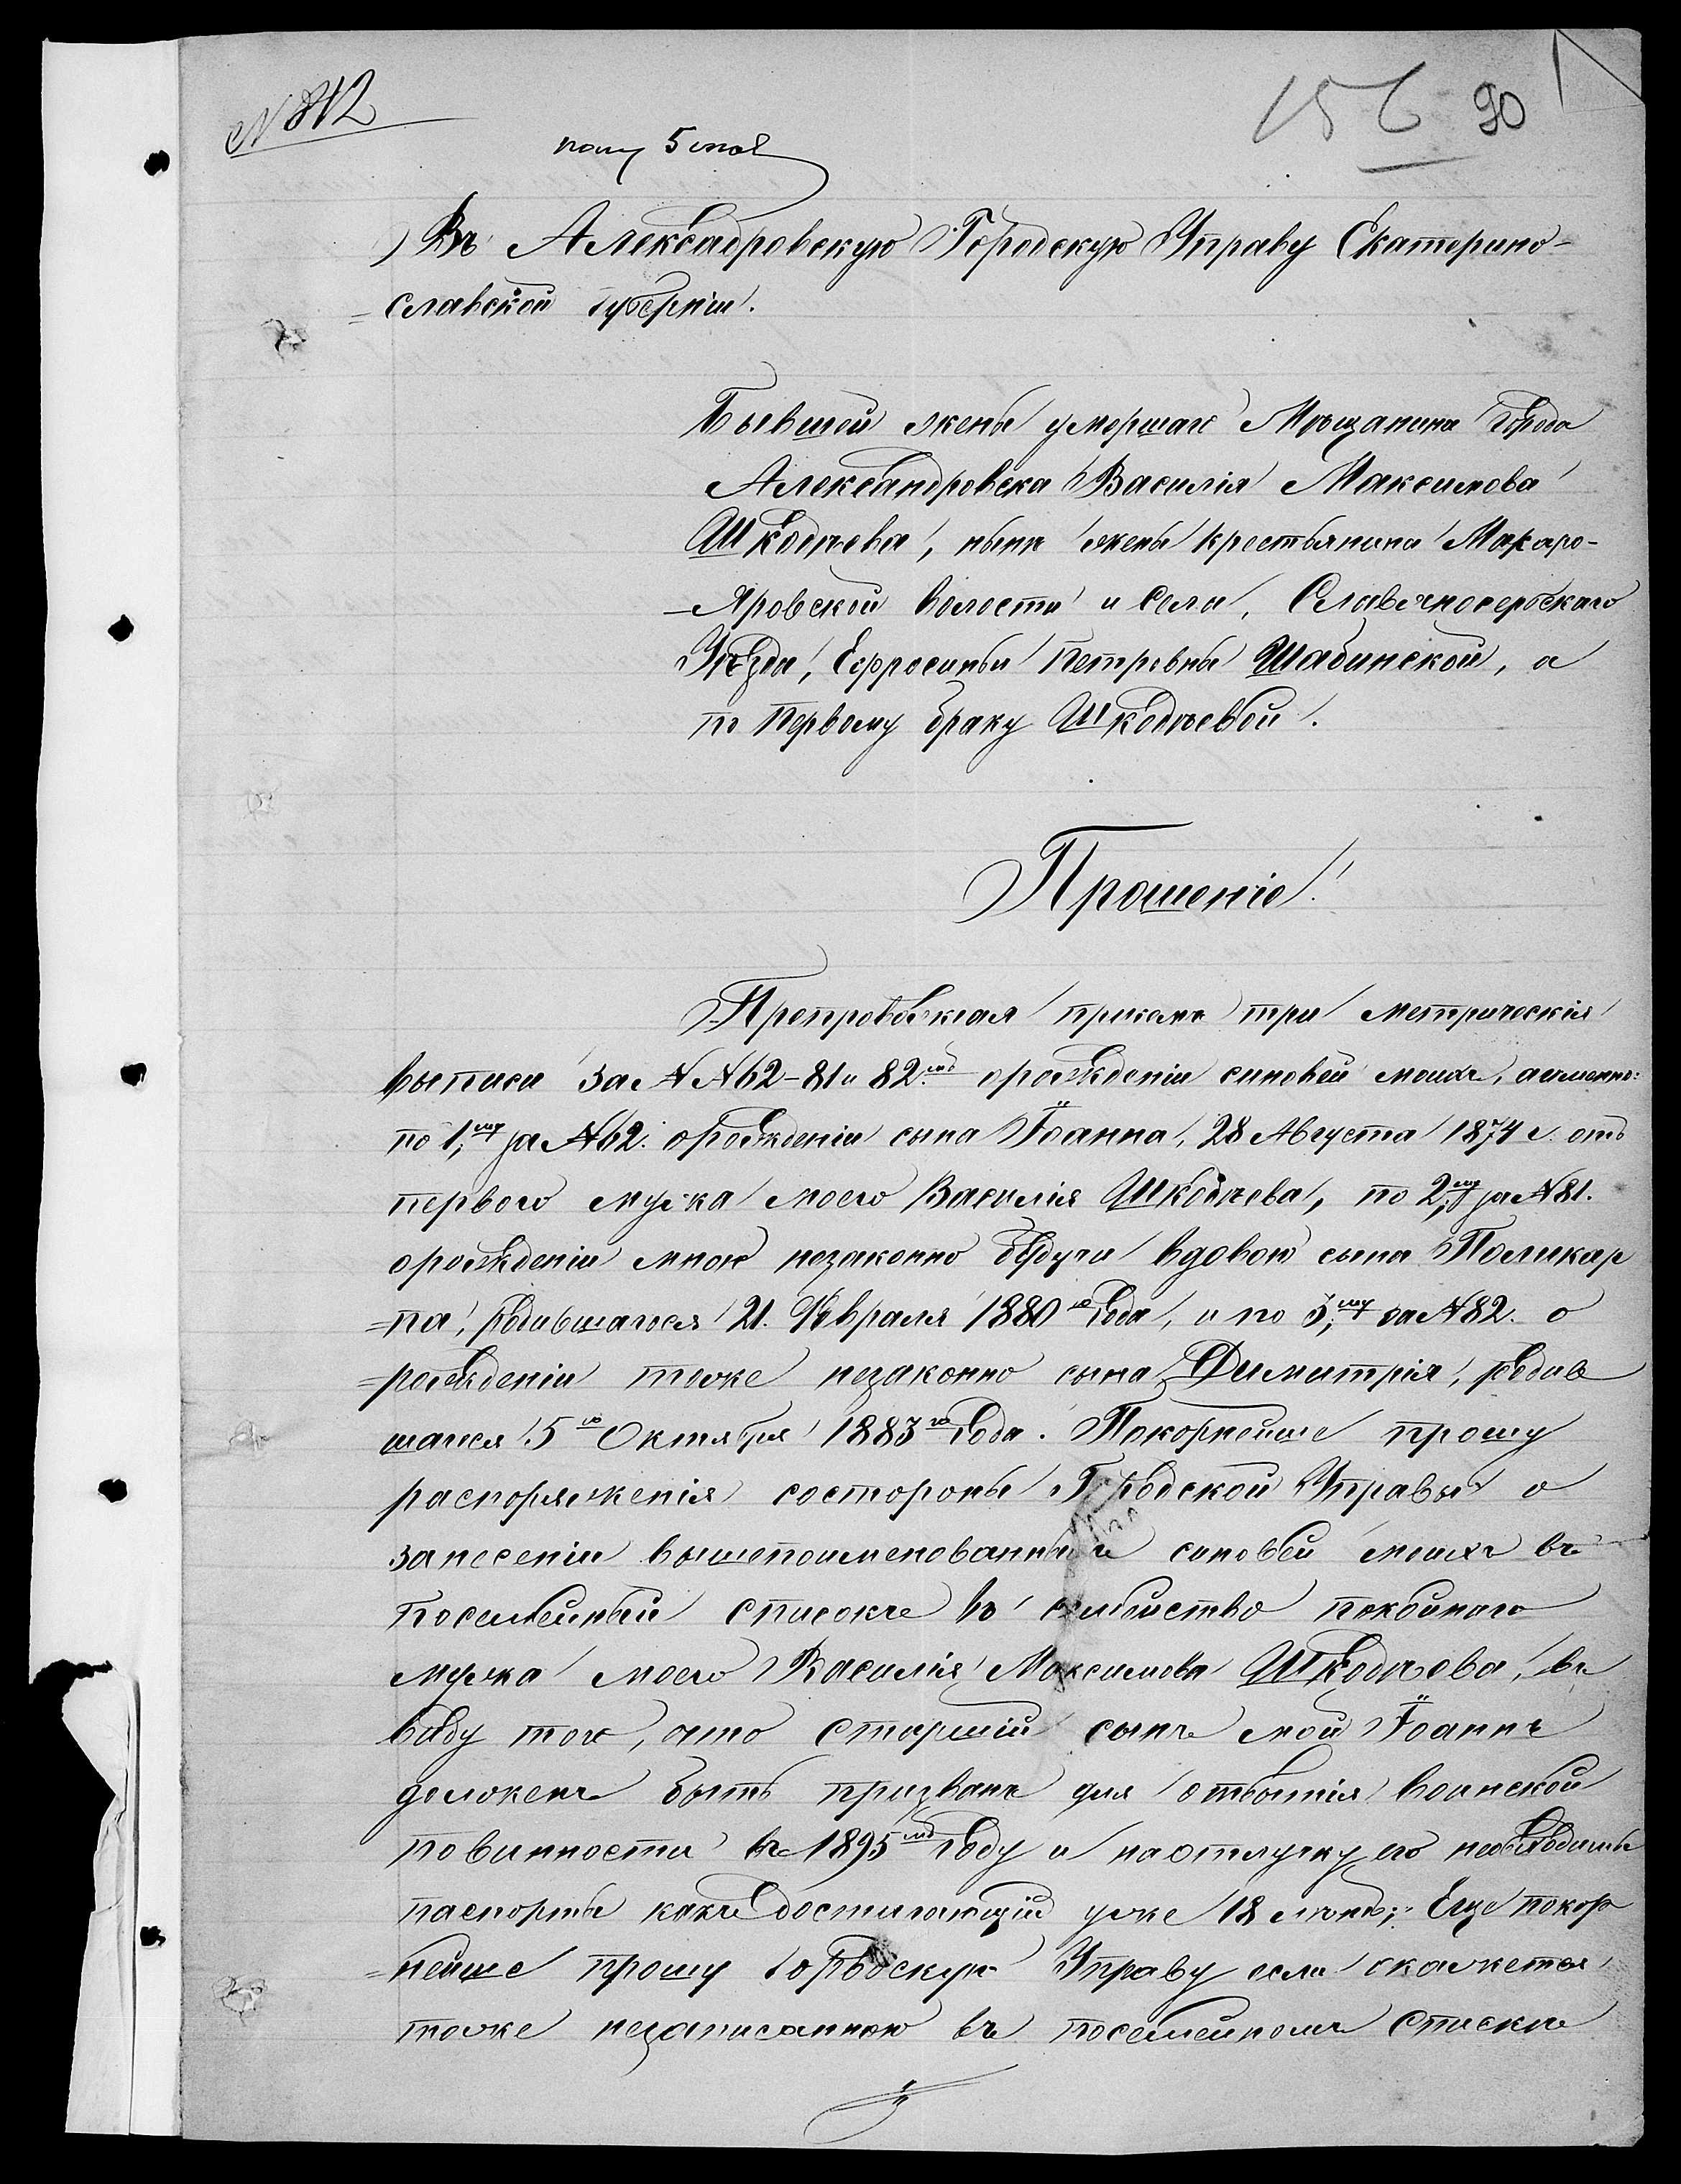 N 812
156 90
полу 5 мая
Въ Александровскую Городскую Управу Екатерино-
=славской губерніи.
Бывшей жены умершаго Мѣщанина города
Александровска Василія Максимова
Шкодѣева, нынѣ жены крестьянина Макаро-
-Яровской волости и села, Славяносербскаго
Уѣзда, Ефросиньи Петровны Шабинской, а
по первому браку Шкодѣевой.
Прошеніе.
Препровождая присемъ три метрическія
выписи за NN 62-81 и 82мъ орожденіи синовей моихъ, аименно:
по 1,му за N 62. орожденіи сына Іоанна, 28 Августа 1874 г. отъ
первого мужа моего Василія Шкодѣева, по 2,му за N 81.
орожденіи мною незаконно будучи вдовою сына Поликар
=па, родившагося 21. Февраля 1880го года, и по 3,му за N 82. о
=рожденіи тоже незаконно сына Димитрія, родив
шагося 5го Октября 1883го года. Покорнейше прошу
распоряженія состороны Городской Управы о
занесеніи вышепоименованныхъ синовей моихъ въ
Посемейный списокъ въ семейство покойного
мужа моего Василія Максимова Шкодѣева, въ
виду того, што старшій сынъ мой Іоаннъ
долженъ быть призванъ для отбытія воинской
повинности въ 1895мъ году и наотлучку его необходимъ
паспортъ какъ достигающій уже 18 лѣтъ; Еще покор
=нейше прошу Городскую Управу если окажется
тоже незаписанною въ посемейномъ спискѣ